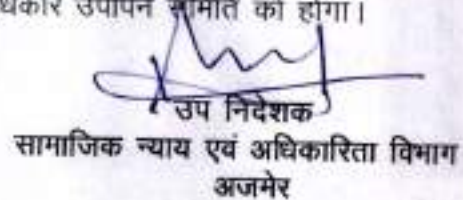 उपापन समिति को होगा।
उप निदेशक
सामाजिक न्याय एवं अधिकारिता विभाग
अजमेर